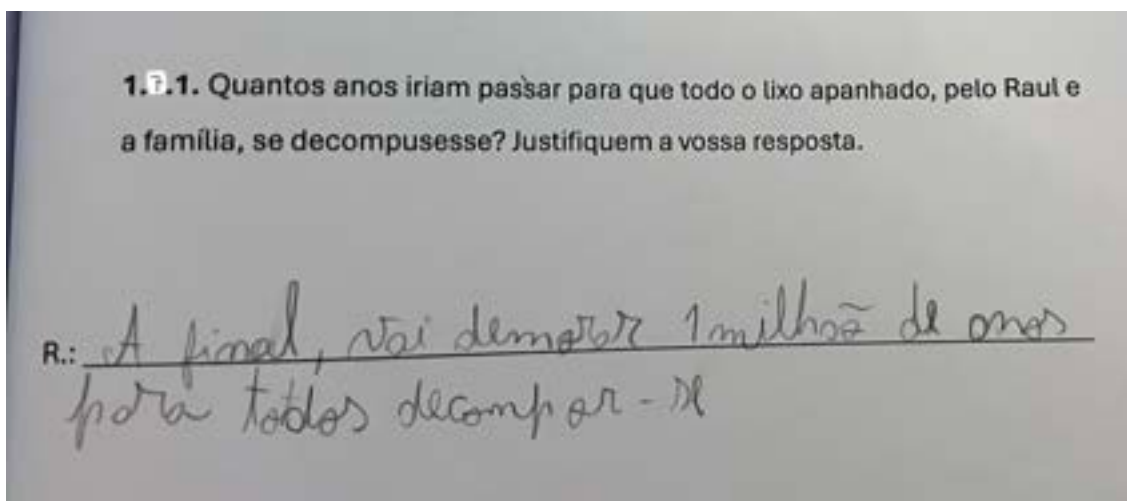 1.7.1. Quantos anos iriam passar para que todo o lixo apanhado, pelo Raul e
a família, se decompusesse? Justifiquem a vossa resposta.
R.: A final, vai demorar 1 milhoã de anos
para todos decompor-se